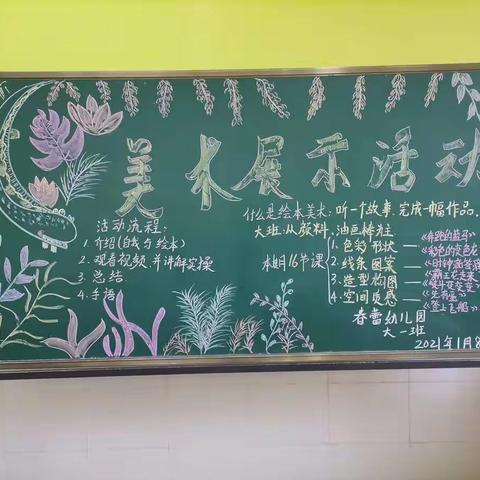 美术展示活动
活动流程:
1. 介绍(自我与绘本)
2. 观看视频,并讲解实操
3. 总结
4. 手语
什么是绘本美术:听一个故事,完成一幅作品.
大班:从颜料,油画棒,往
本期16节课
1. 色彩 形状 — 《奔跑的斑马》
2. 线条 图案 —
3. 造型 构图 —
4. 空间 质感 —
春蕾幼儿园
大一班
2021年1月8